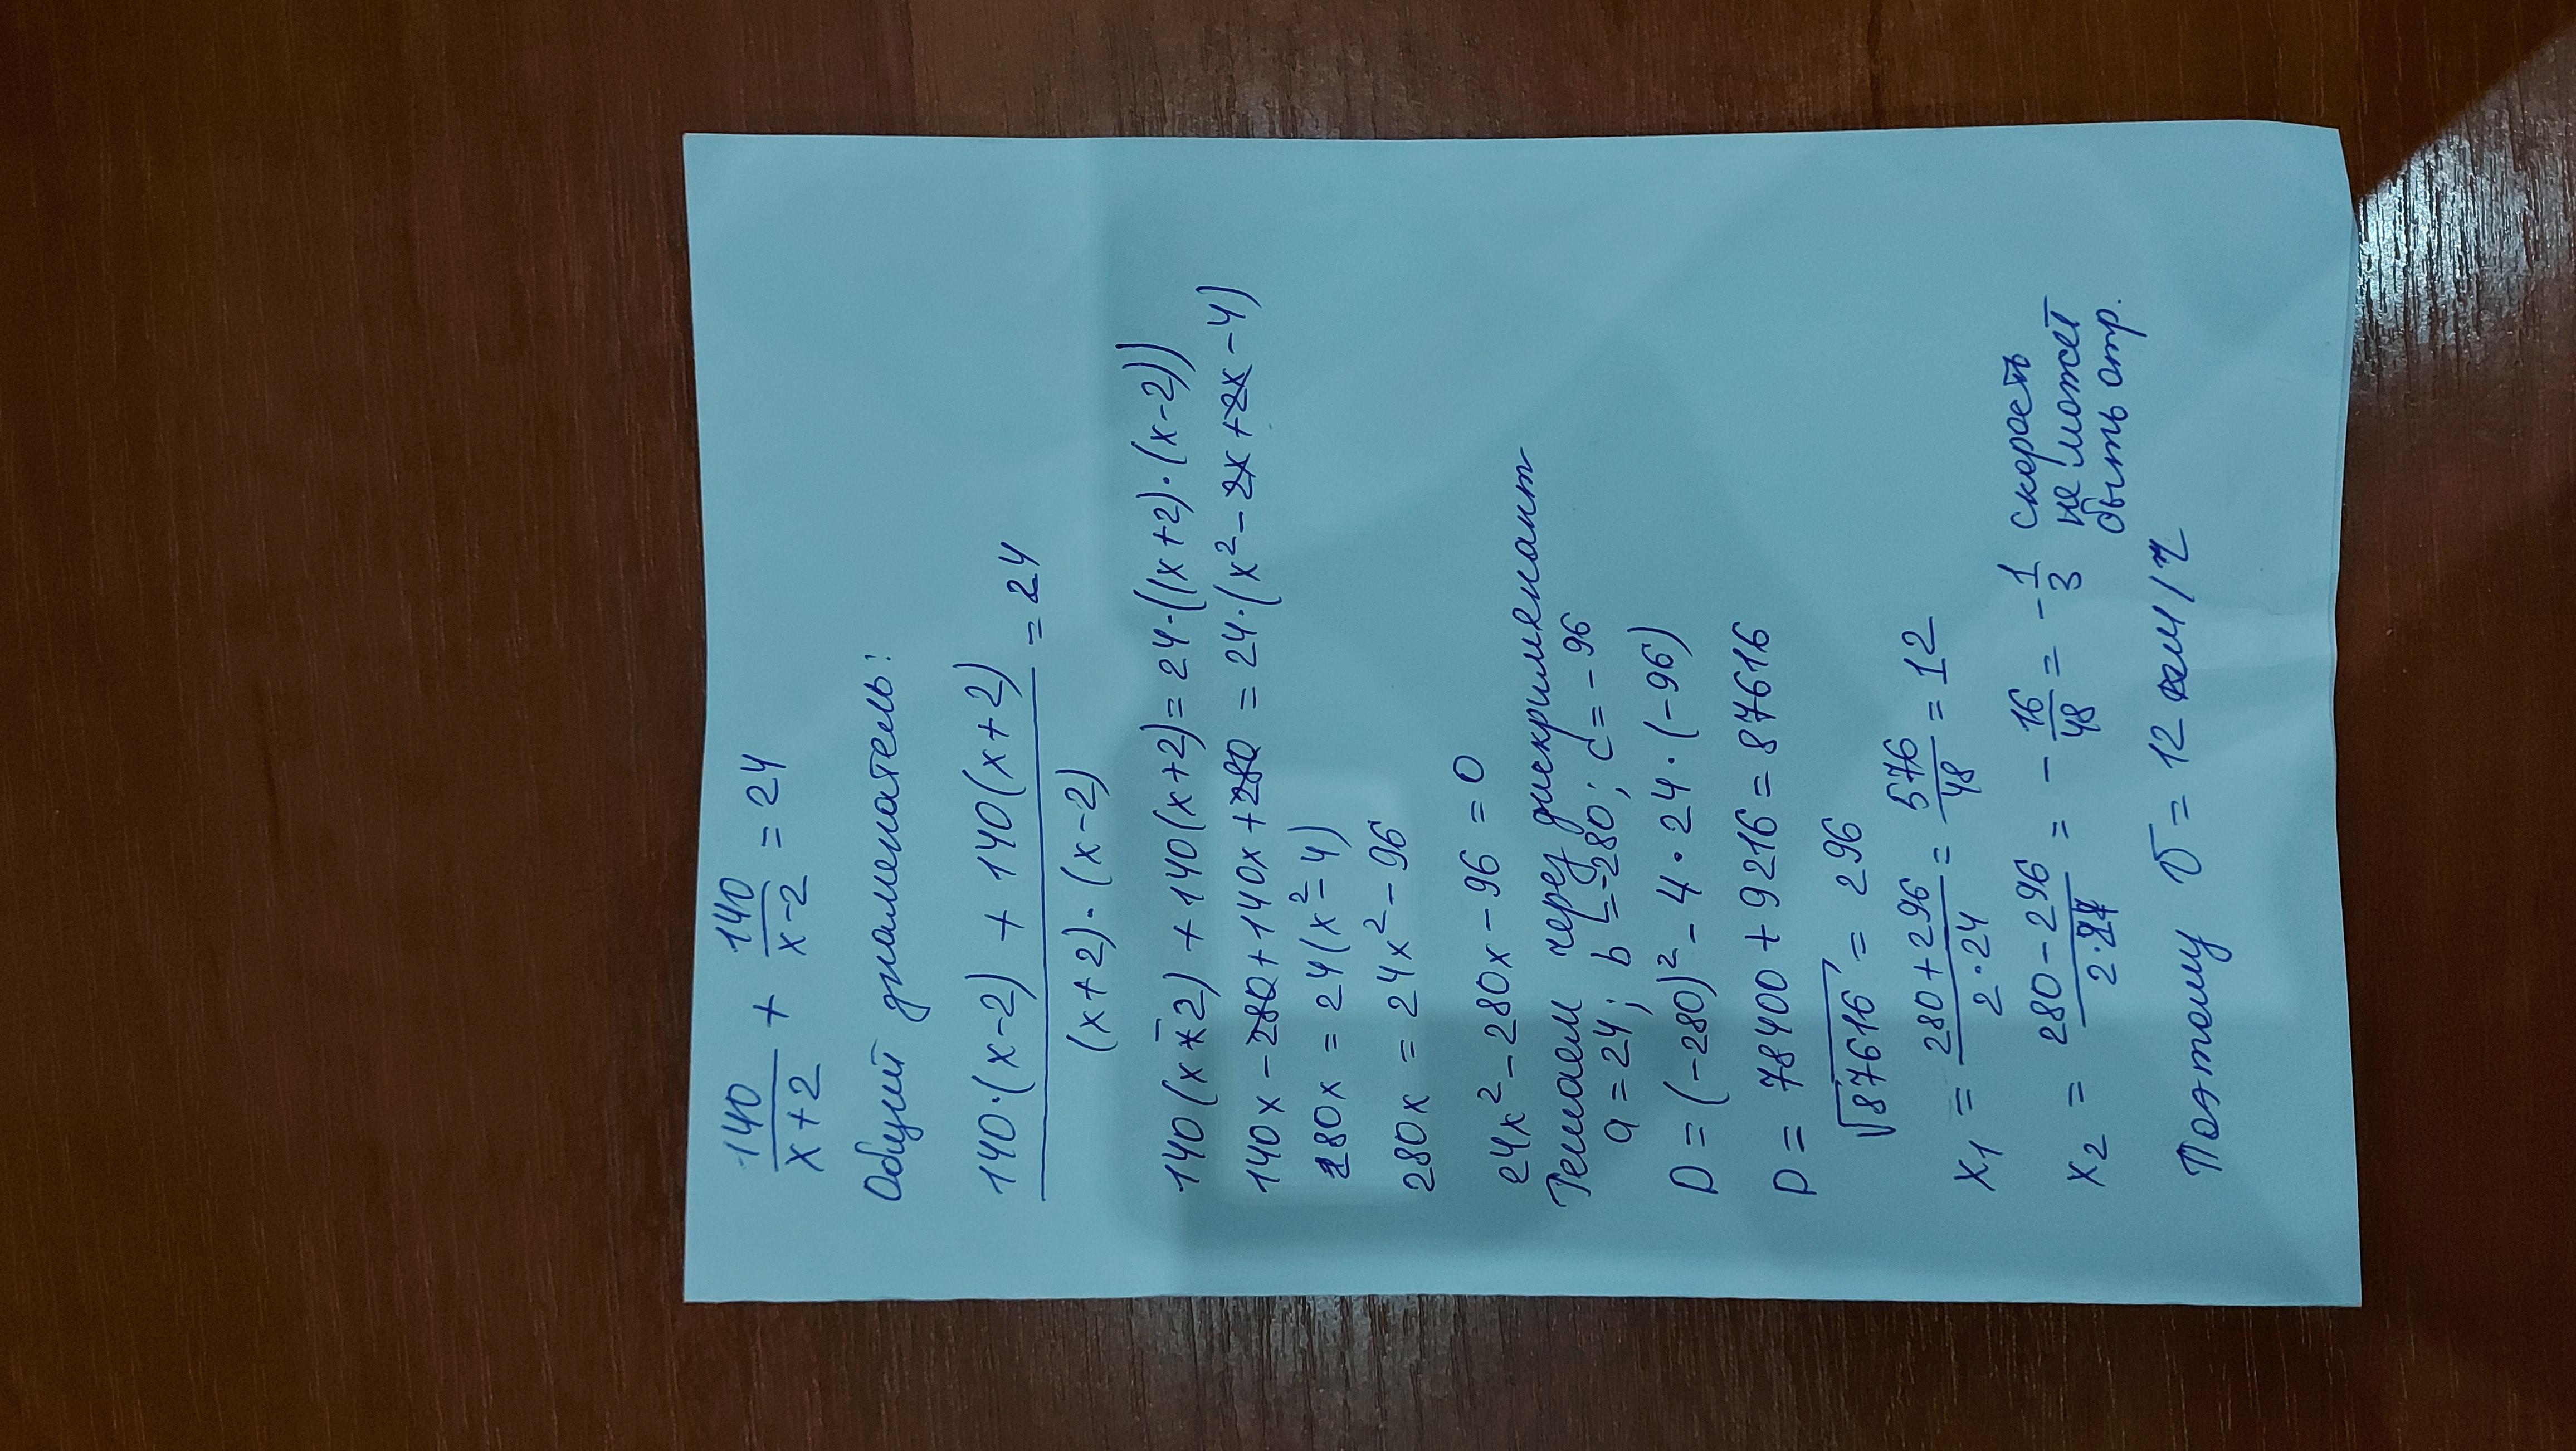 140/(x+2) + 140/(x-2) = 24
Общий знаменатель:
(140·(x-2) + 140(x+2))/((x+2)·(x-2)) = 24
140(x-2) + 140(x+2) = 24·((x+2)·(x-2))
140x - 280 + 140x + 280 = 24·(x² - 2x + 2x - 4)
280x = 24(x² - 4)
280x = 24x² - 96
24x² - 280x - 96 = 0
Решаем через дискриминант
a = 24; b = -280; c = -96
D = (-280)² - 4·24·(-96)
D = 78400 + 9216 = 87616
√87616 = 296
x₁ = (280+296)/(2·24) = 576/48 = 12
x₂ = (280-296)/(2·24) = -16/48 = -1/3 скорость не может быть отр.
Поэтому v = 12 км/ч